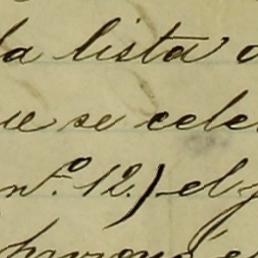 la lista
ue se cele
nº. 12.) el